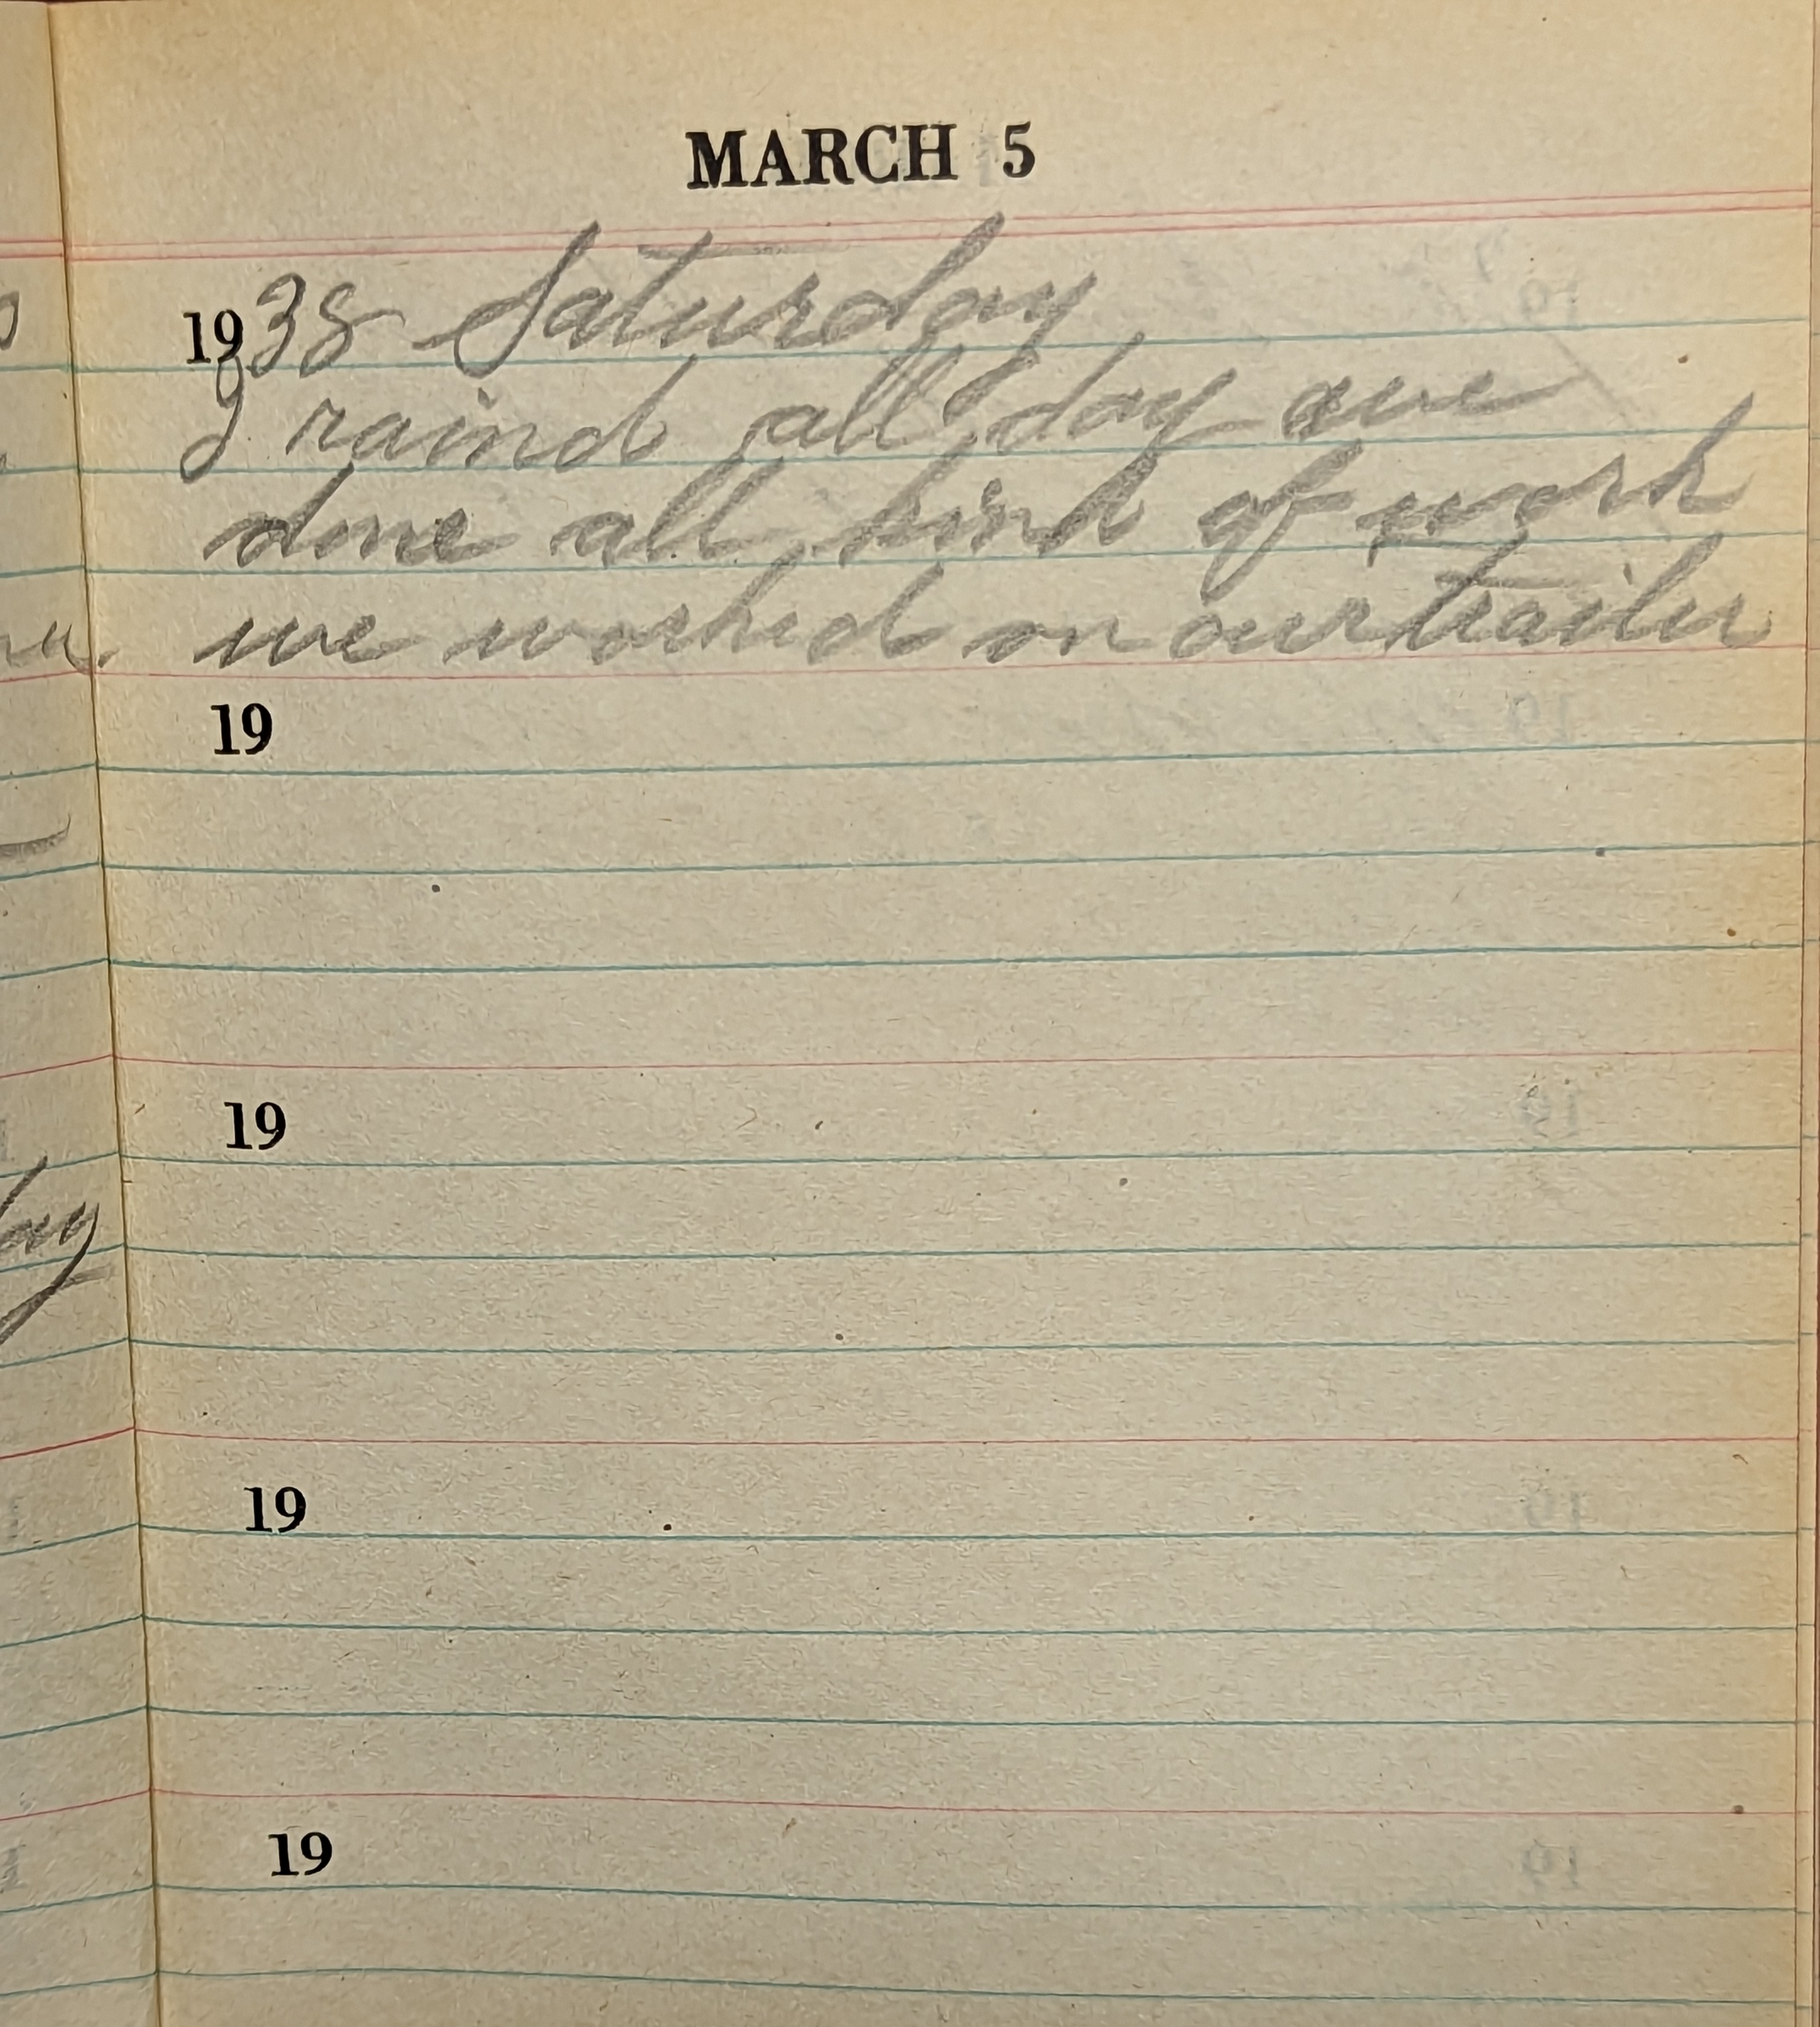 MARCH 5
1938 Saturday
I raind all day we
done all kind of work
we worked on our trailer
19
19
19
19